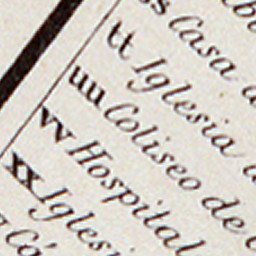 ss Casa
tt Iglesia
uu Coliseo de
vv Hospital
xx Iglesi
Cá